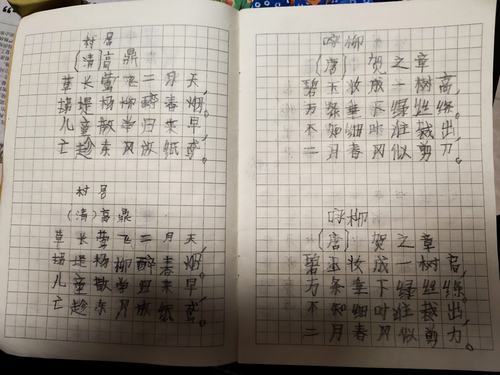 村居
(清)高鼎
草长莺飞二月天,
堤杨柳醉春烟。
儿童散学归来早,
亡趁东风放纸鸢。
村居
(清)高鼎
草长莺飞二月天,
堤杨柳醉春烟。
儿童散学归来早,
亡趁东风放纸鸢。
咏柳
(唐)贺之章
碧玉妆成一树高,
万条垂下绿丝绦。
不知细叶谁裁出,
二月春风似剪刀。
咏柳
(唐)贺之章
碧玉妆成一树高,
万条垂下绿丝绦。
不知细叶谁裁出,
二月春风似剪刀。